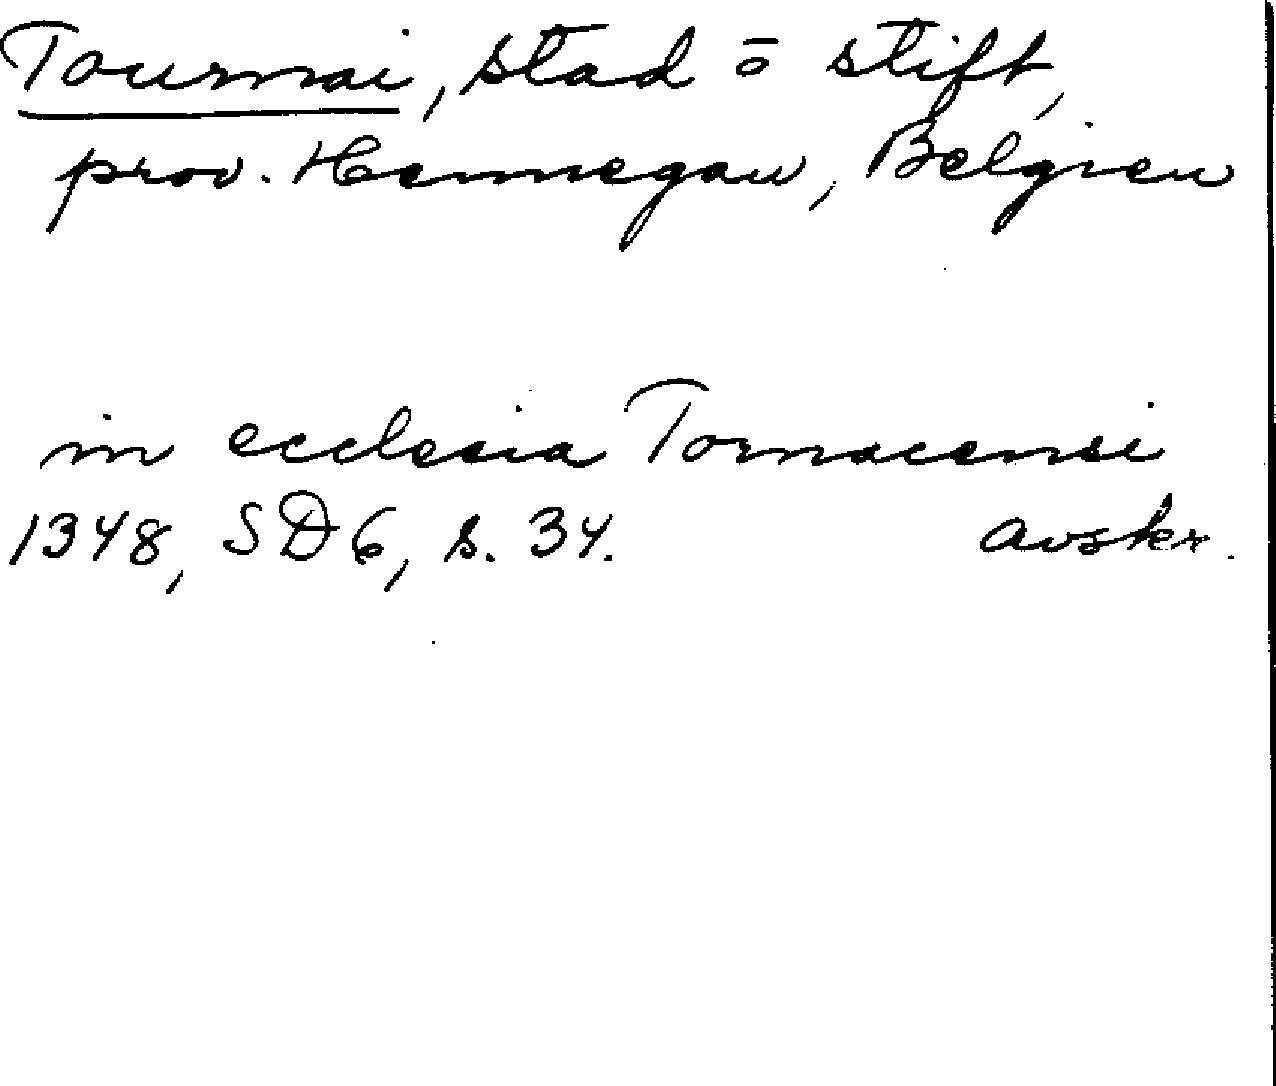 Tournai, stad ō stift,
prov. Hennegau, Belgien
in ecclesia Tornacensi
1348, SD6, s. 34. avskr.